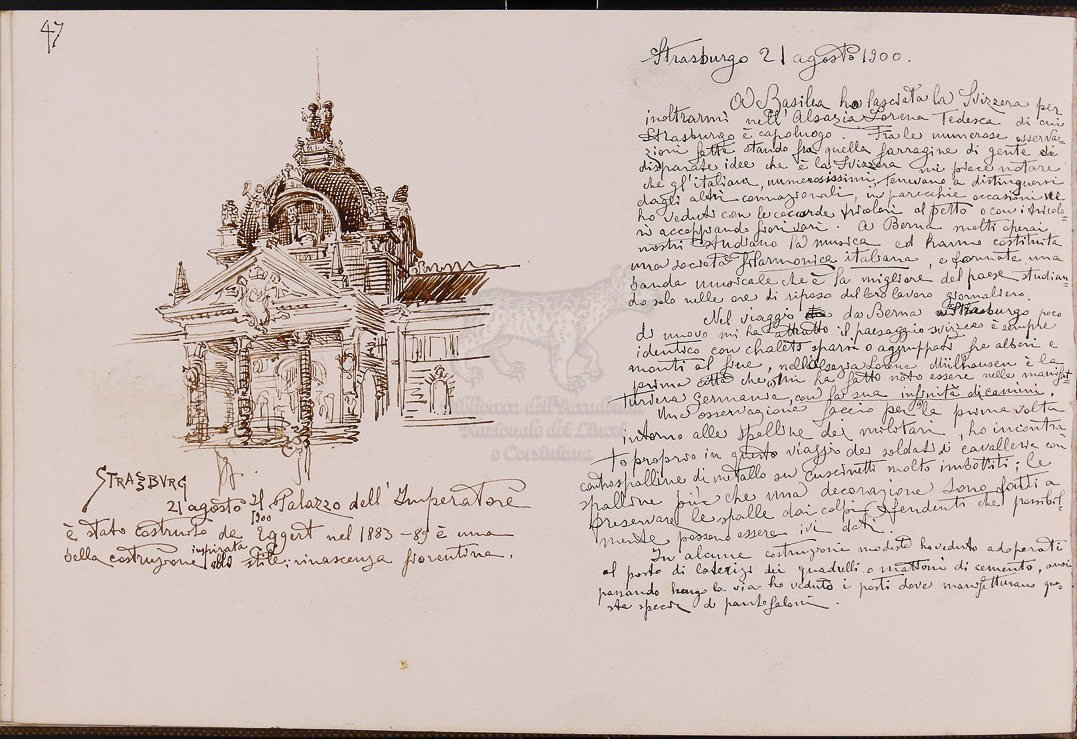 47
STRASSBVRG
21 agosto 1900 Il Palazzo dell'Imperatore
è stato costruito da Eggert nel 1883-89 è una
bella costruzione inspirata allo stile: rinascenza fiorentina.
Strasburgo 21 agosto 1900.
A Basilea ho lasciata la Svizzera per
inoltrarmi nell'Alsazia Lorena Tedesca di cui
Strasburgo è capoluogo. Fra le numerose osserva-
zioni fatte stando fra quella farragine di gente di
disparate idee che è la Svizzera mi piace notare
che gl'italiani, numerosissimi, tenevano a distinguersi
dagli altri connazionali, in parecchie occasioni ne
ho veduti con le coccarde tricolori al petto o con i tricolo-
ri accoppiando fiori vari. A Berna molti operai
nostri studiano la musica ed hanno costituita
una società filarmonica italiana, e formate una
banda musicale che è la migliore del paese studian-
do solo nelle ore di riposo del loro lavoro giornaliero.
Nel viaggio da Berna a Strasburgo poco
di nuovo mi ha il paesaggio svizzero è sempre
identico con chalets sparsi o aggruppati fra alberi e
monti al fine, nell'Alsazia Lorena Mülhausen è la
prima città che mi ha fatto noto essere nella manifat-
turiera Germania, con la sua infinità di camini.
Una osservazione faccio per la prima volta
intorno alle spalline dei militari, ho incontra-
to proprio in questo viaggio dei soldati di cavalleria con
controspalline di metallo su cuscinetti molto imbottiti; le
spalline più che una decorazione sono fatti a
preservare le spalle dai colpi fendenti che possibil-
mente possono essere ivi dati.
In alcune costruzioni modeste ho veduto adoperati
al posto di laterizi dei quadrelli o mattoni di cemento, anzi
passando lungo la via ho veduto i posti dove manifatturano que-
sta specie di
Biblioteca dell'Accademia
Nazionale dei Lincei
e Corsiniana